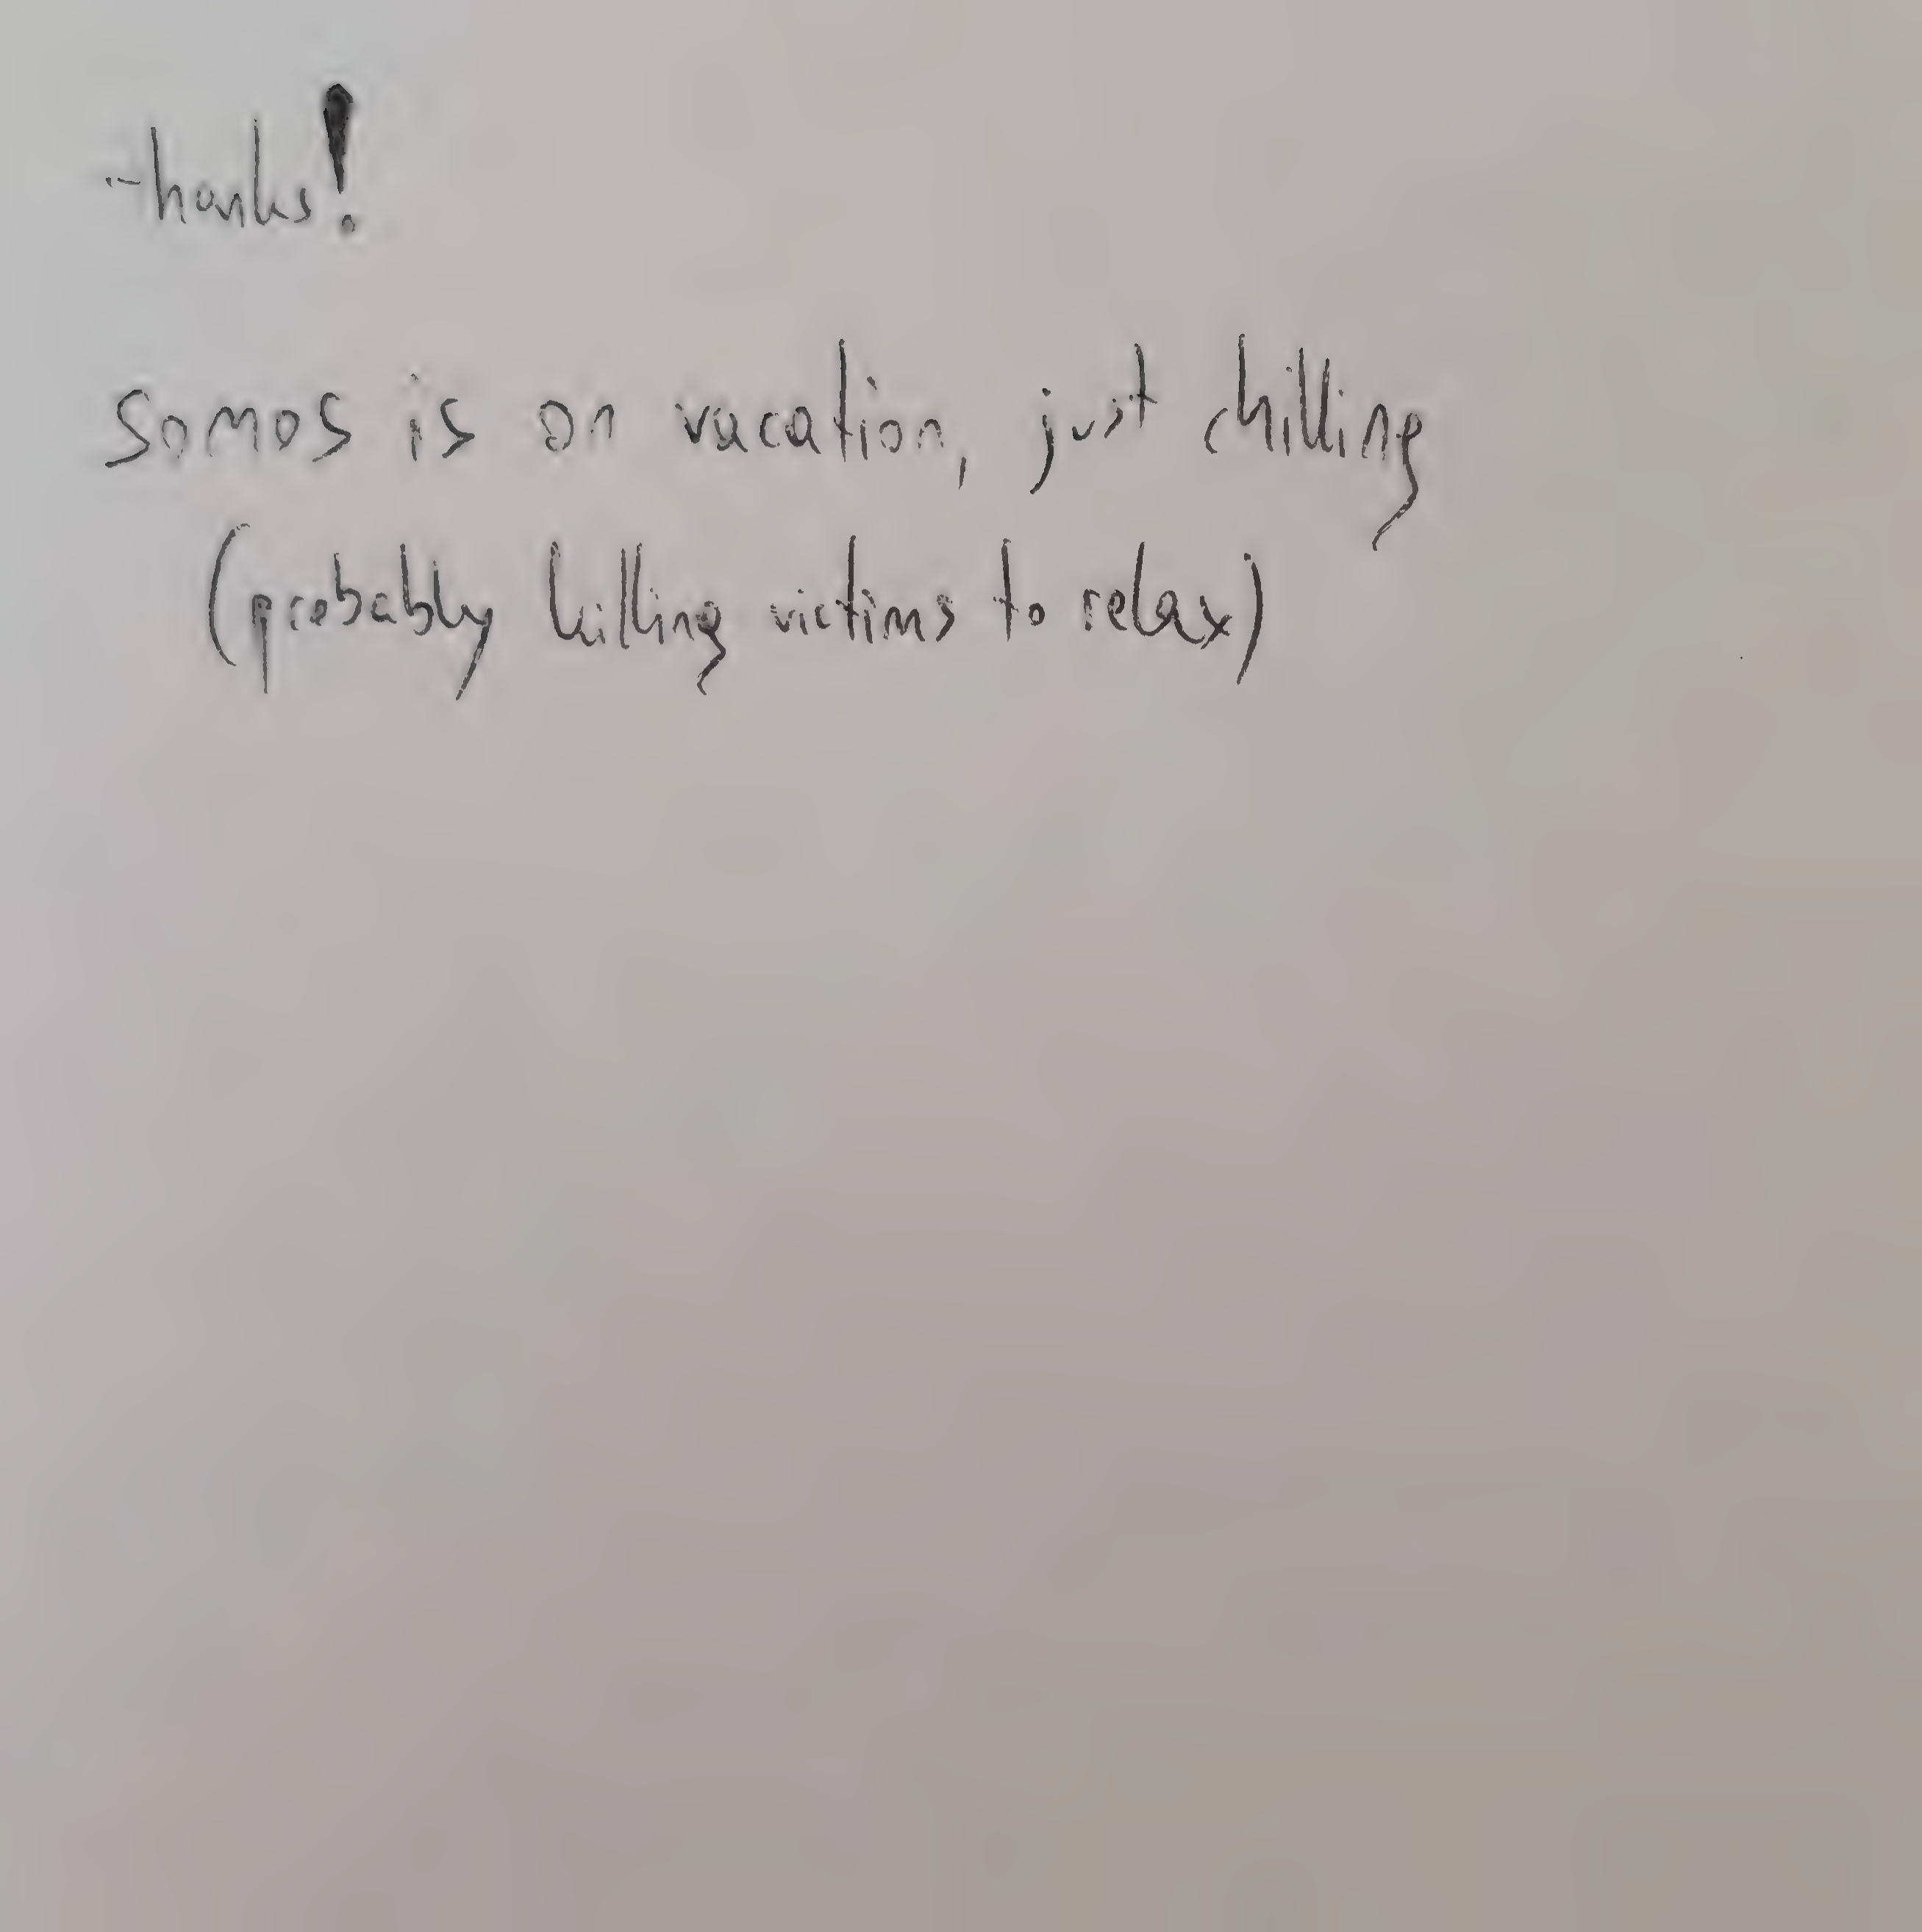 thanks!
somos is on vacation, just chilling
(probably killing victims to relax)